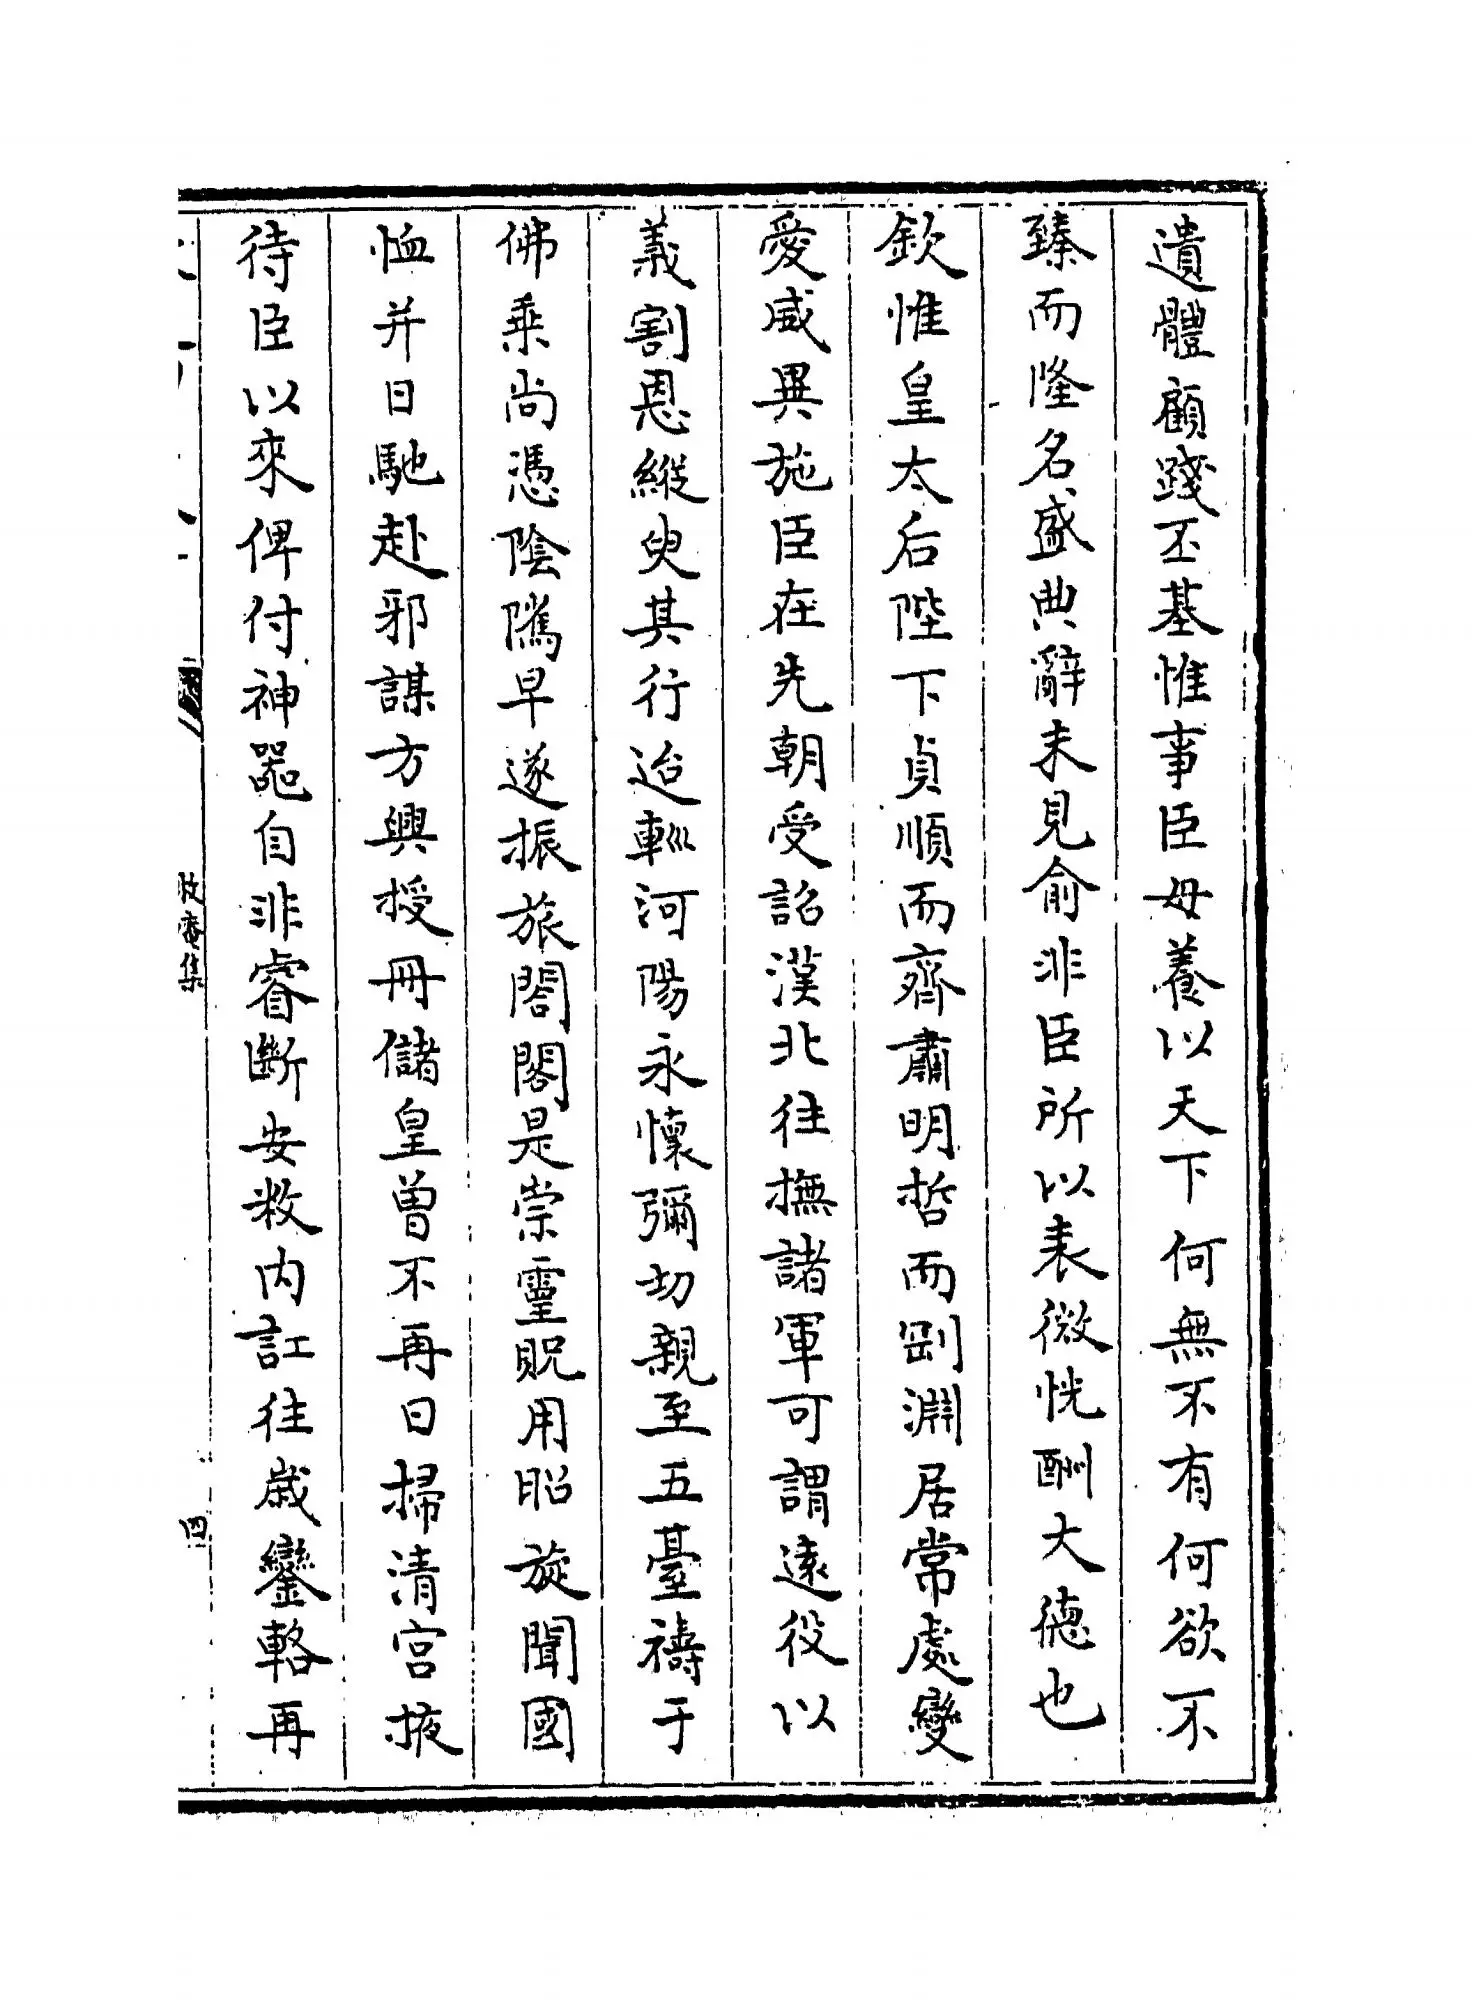 遺體顧踐丕基惟事臣母養以天下何無不有何欲不
臻而隆名盛典辭未見俞非臣所以表微恍酬大德也
欽惟皇太后陛下貞順而齊肅明哲而剛淵居常處變
愛威異施臣在先朝受詔漠北往撫諸軍可謂遠役以
義割恩縱臾其行迨輕河陽永懷彌切親至五臺禱于
佛乗尚憑陰隲早遂振旅閤閣是崇靈貺用昭旋聞國
恤并日馳赴邪謀方興授冊儲皇曾不再日掃清宫掖
待臣以來俾付神器自非睿斷安救内訌往歳鑾輅再
牧庵集
四